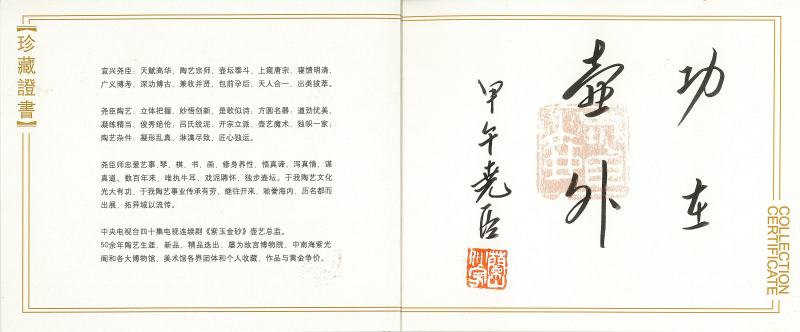 【珍藏證書】
宜兴尧臣：天赋高华、陶艺宗师、壶坛泰斗、上窥唐宗、寝馈明清、
广义博考、深功博古、兼收并贤、包前孕后、天人合一、出类拔萃。
尧臣陶艺：立体把握、妙悟创新、是歌似诗；方圆名器：道劲优美、
凝练精当、俊秀绝伦；吕氏绞泥：开宗立派、壶艺魔术、独帜一家；
陶艺杂件：凝形乱真、淋漓尽致、匠心独运。
尧臣师忠爱艺事，琴、棋、书、画、修身养性，悟真谛、泻真情、谋
真道。数百年来，唯执牛耳，戏泥聘怀、独步壶坛。于我陶艺文化
光大有功，于我陶艺事业传承有劳，继往开来、驰誉海内、历名都而
出展、拓异域以流传。
中央电视台四十集电视连续剧《紫玉金砂》壶艺总监。
50余年陶艺生涯，新品、精品迭出、屡为故宫博物院、中南海紫光
阁和各大博物馆、美术馆各界团体和个人收藏、作品与黄金争价。
功在
壶外
甲午尧臣
COLLECTION
CERTIFICATE